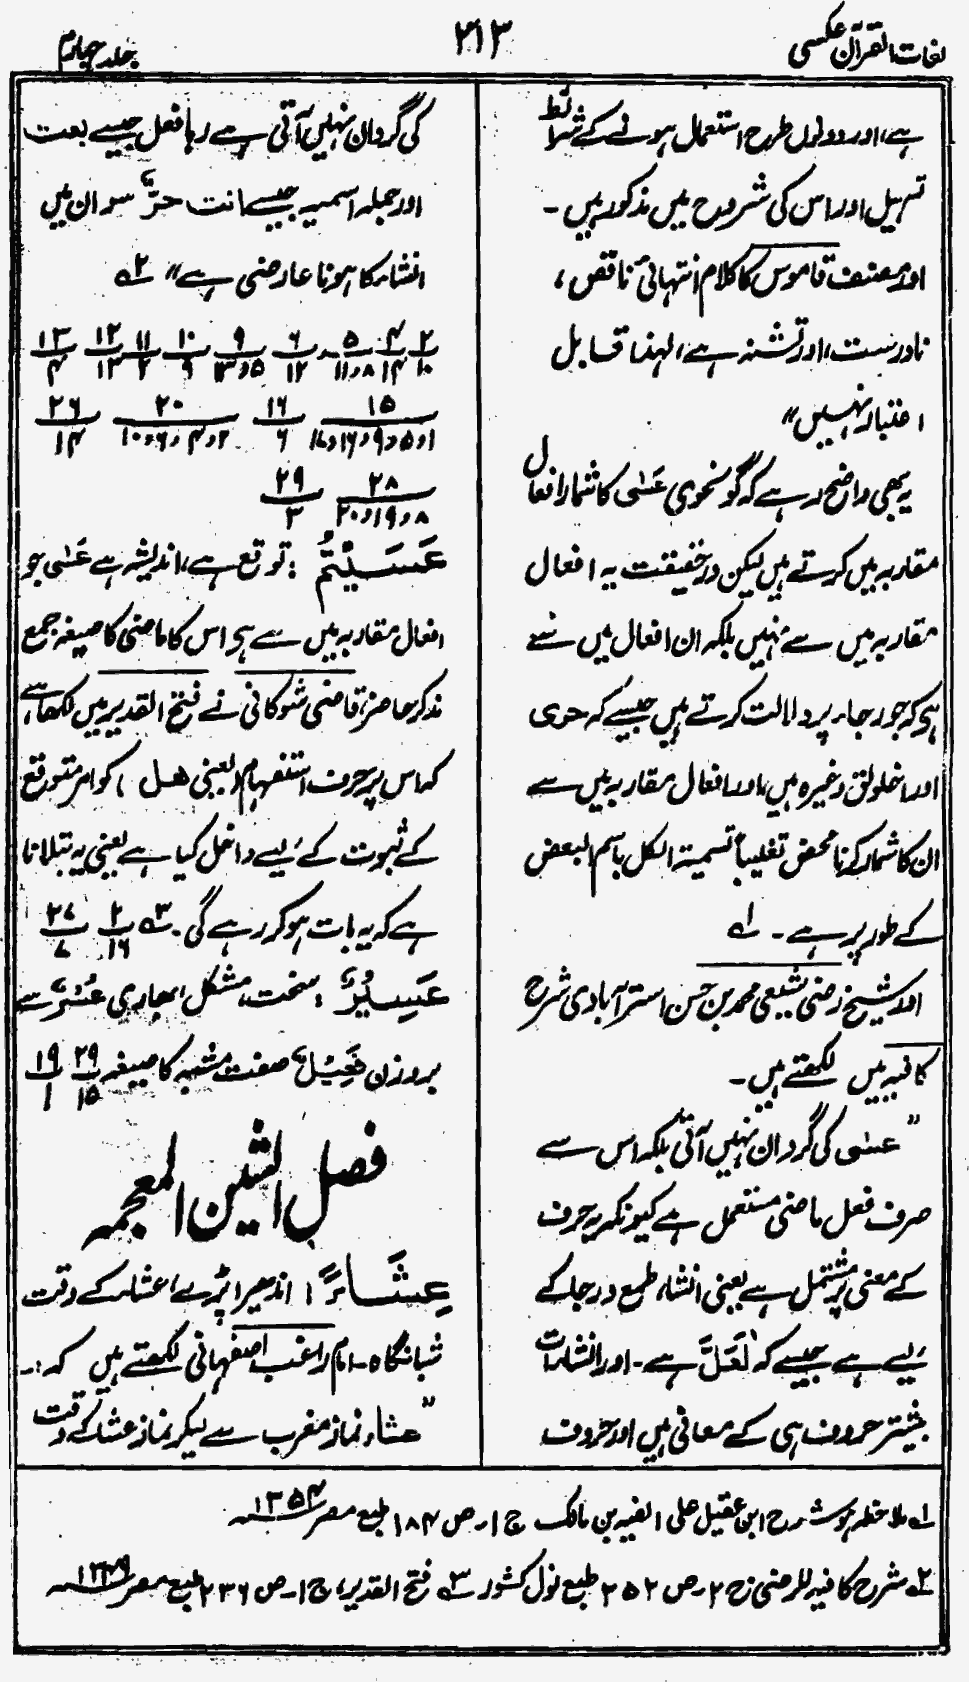 لغات القرآن عکسی
۲۱۳
جلد چہارم
ہے، اور دونوں طرح استعمال ہونے کے شرائط
تسہیل اور اس کی شروح میں مذکور ہیں۔
اور مصنف قاموس کا کلام انتہائی ناقص،
نادرست، اور تشنہ ہے، لہٰذا قابل
اعتبار نہیں"
یہ بھی واضح رہے کہ گو نحوی عَسٰی کا شمار افعال
مقاربہ میں کرتے ہیں لیکن درحقیقت یہ افعال
مقاربہ میں سے نہیں بلکہ ان افعال میں سے
ہی کہ جو رجاء پر دلالت کرتے ہیں جیسے کہ حری
اور اخلولق وغیرہ ہیں، اور افعال مقاربہ میں سے
ان کا شمار کرنا محض تغلیباً تسمیۃ الکل باسم البعض
کے طور پر ہے۔ ؎۱
اور شیخ رضی شیعی محمد بن حسن استرآبادی شرح
کافیہ میں لکھتے ہیں۔
"عسٰی کی گردان نہیں آتی بلکہ اس سے
صرف فعل ماضی مستعمل ہے کیونکہ یہ حرف
کے معنی پر مشتمل ہے یعنی انشاء طمع و رجا کے
لیے ہے جیسے کہ لَعَلَّ ہے۔ اور انشاءات
بیشتر حروف ہی کے معانی ہیں اور حروف
کی گردان نہیں آتی ہے رہا فعل جیسے بعت
اور جملہ اسمیہ جیسے انت حرٌّ سو ان میں
انشاء کا ہونا عارضی ہے" ؎۲
۲ ۴ ۵ ۶ ۹ ۱۰ ۱۱ ۱۲ ۱۳
۱۰ ۱۴ ۸و۱۱ ۱۲ ۵و۱۳ ۹ ۲ ۱۳ ۴
۱۵ ۱۶ ۲۰ ۲۶
۱و۵و۹و۱۶و۱۷ ۶ ۲و۴و۶و۱۰ ۱۴
۲۸ ۲۹
۸و۱۹و۲۰ ۳
عَسَیْتُمْ: توقع ہے، اندیشہ ہے عَسٰی جو
افعال مقاربہ میں سے ہی اس کا ماضی کا صیغہ جمع
مذکر حاضر، قاضی شوکانی نے فتح القدیر میں لکھا ہے،
کہ اس پر حرف استفہام (یعنی ھل) کو امر متوقع
کے ثبوت کے لیے داخل کیا ہے یعنی یہ بتلانا
ہے کہ یہ بات ہو کر رہے گی۔ ؎۳ ۲ ۲۷
۱۶ ۷
عَسِیْرٌ: سخت، مشکل، بھاری عُسْرٌ سے
بروزن فَعِیْلٌ صفت مشبہ کا صیغہ ۲۹ ۱۹
۱۵ ۱
فصل الشین المعجمہ
عِشَاءً: اندھیرا پڑے، عشاء کے وقت
شبانگاہ۔ امام راغب اصفہانی لکھتے ہیں کہ:۔
"عشاء نماز مغرب سے لیکر نماز عشاء کے وقت
؎۱ ملاحظہ ہو شرح ابن عقیل علی الفیہ بن مالک ج ۱۔ ص ۱۸۴ طبع مصر ۱۳۵۴
؎۲ شرح کافیہ للرضی ج ۲۔ ص ۳۵۲ طبع نول کشور ؎۳ فتح القدیر، ج ۱۔ ص ۲۳۶ طبع مصر ۱۳۴۹